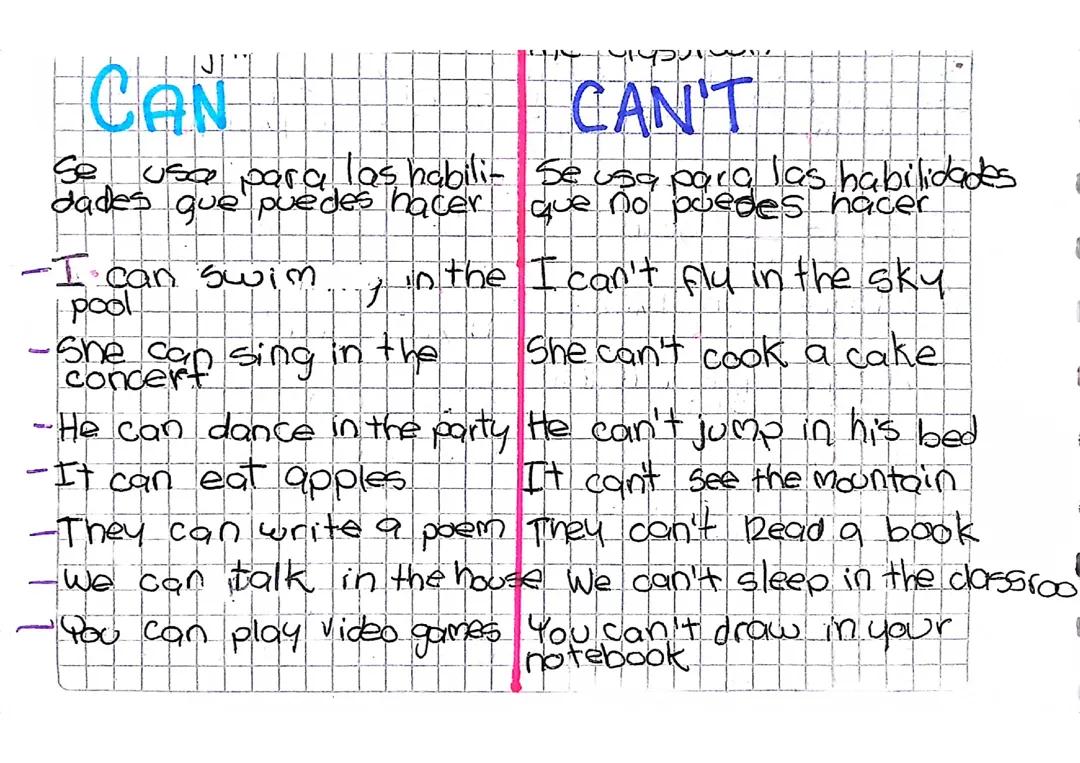 CAN
Se usa para las habili-
dades que puedes hacer
I can swim ..., in the
pool
She can sing in the
concert
He can dance in the party
It can eat apples
They can write a poem
We can talk in the house
You can play video games
CAN'T
Se usa para las habilidades
que no puedes hacer
I can't fly in the sky
She can't cook a cake
He can't jump in his bed
It can't see the mountain
They can't Read a book
We can't sleep in the classroo
You can't draw in your
notebook